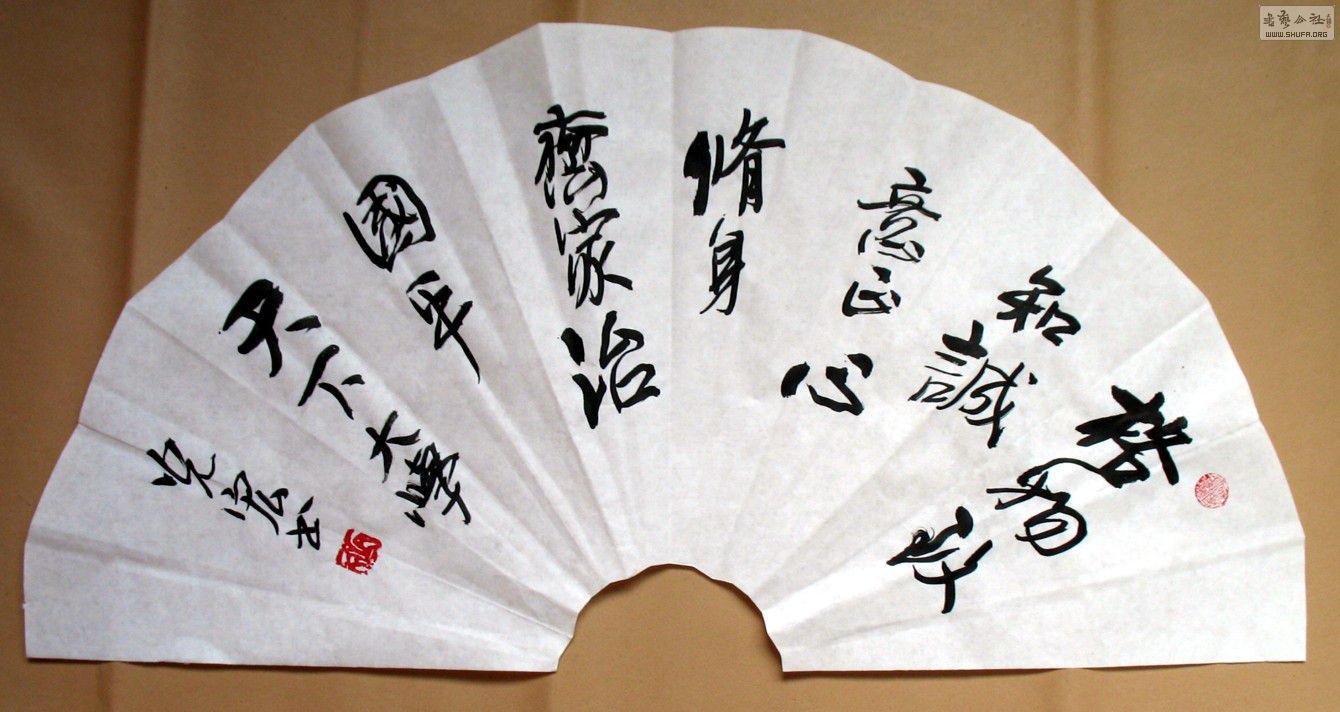 格物致
知誠
意正心
脩身
齊家治
國平
天下
大學
宏书
書藝公社
WWW.SHUFA.ORG